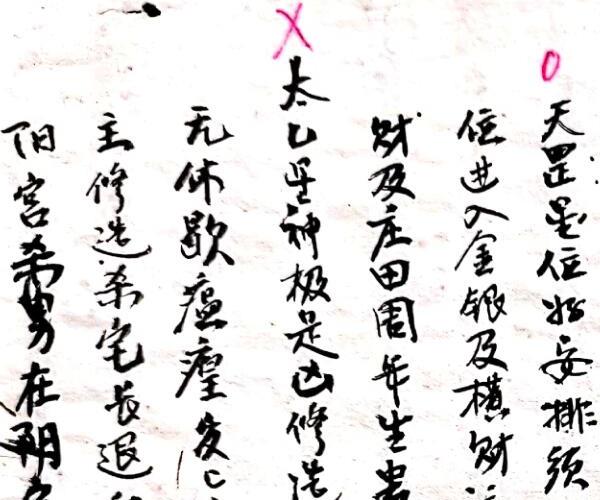 天罡星位好安排须
位进入金银及横财
财及庄田周年生贵
太乙星神极是凶修造
无休歇瘟瘽发
主修造杀宅长退
阳宫杀男在朝